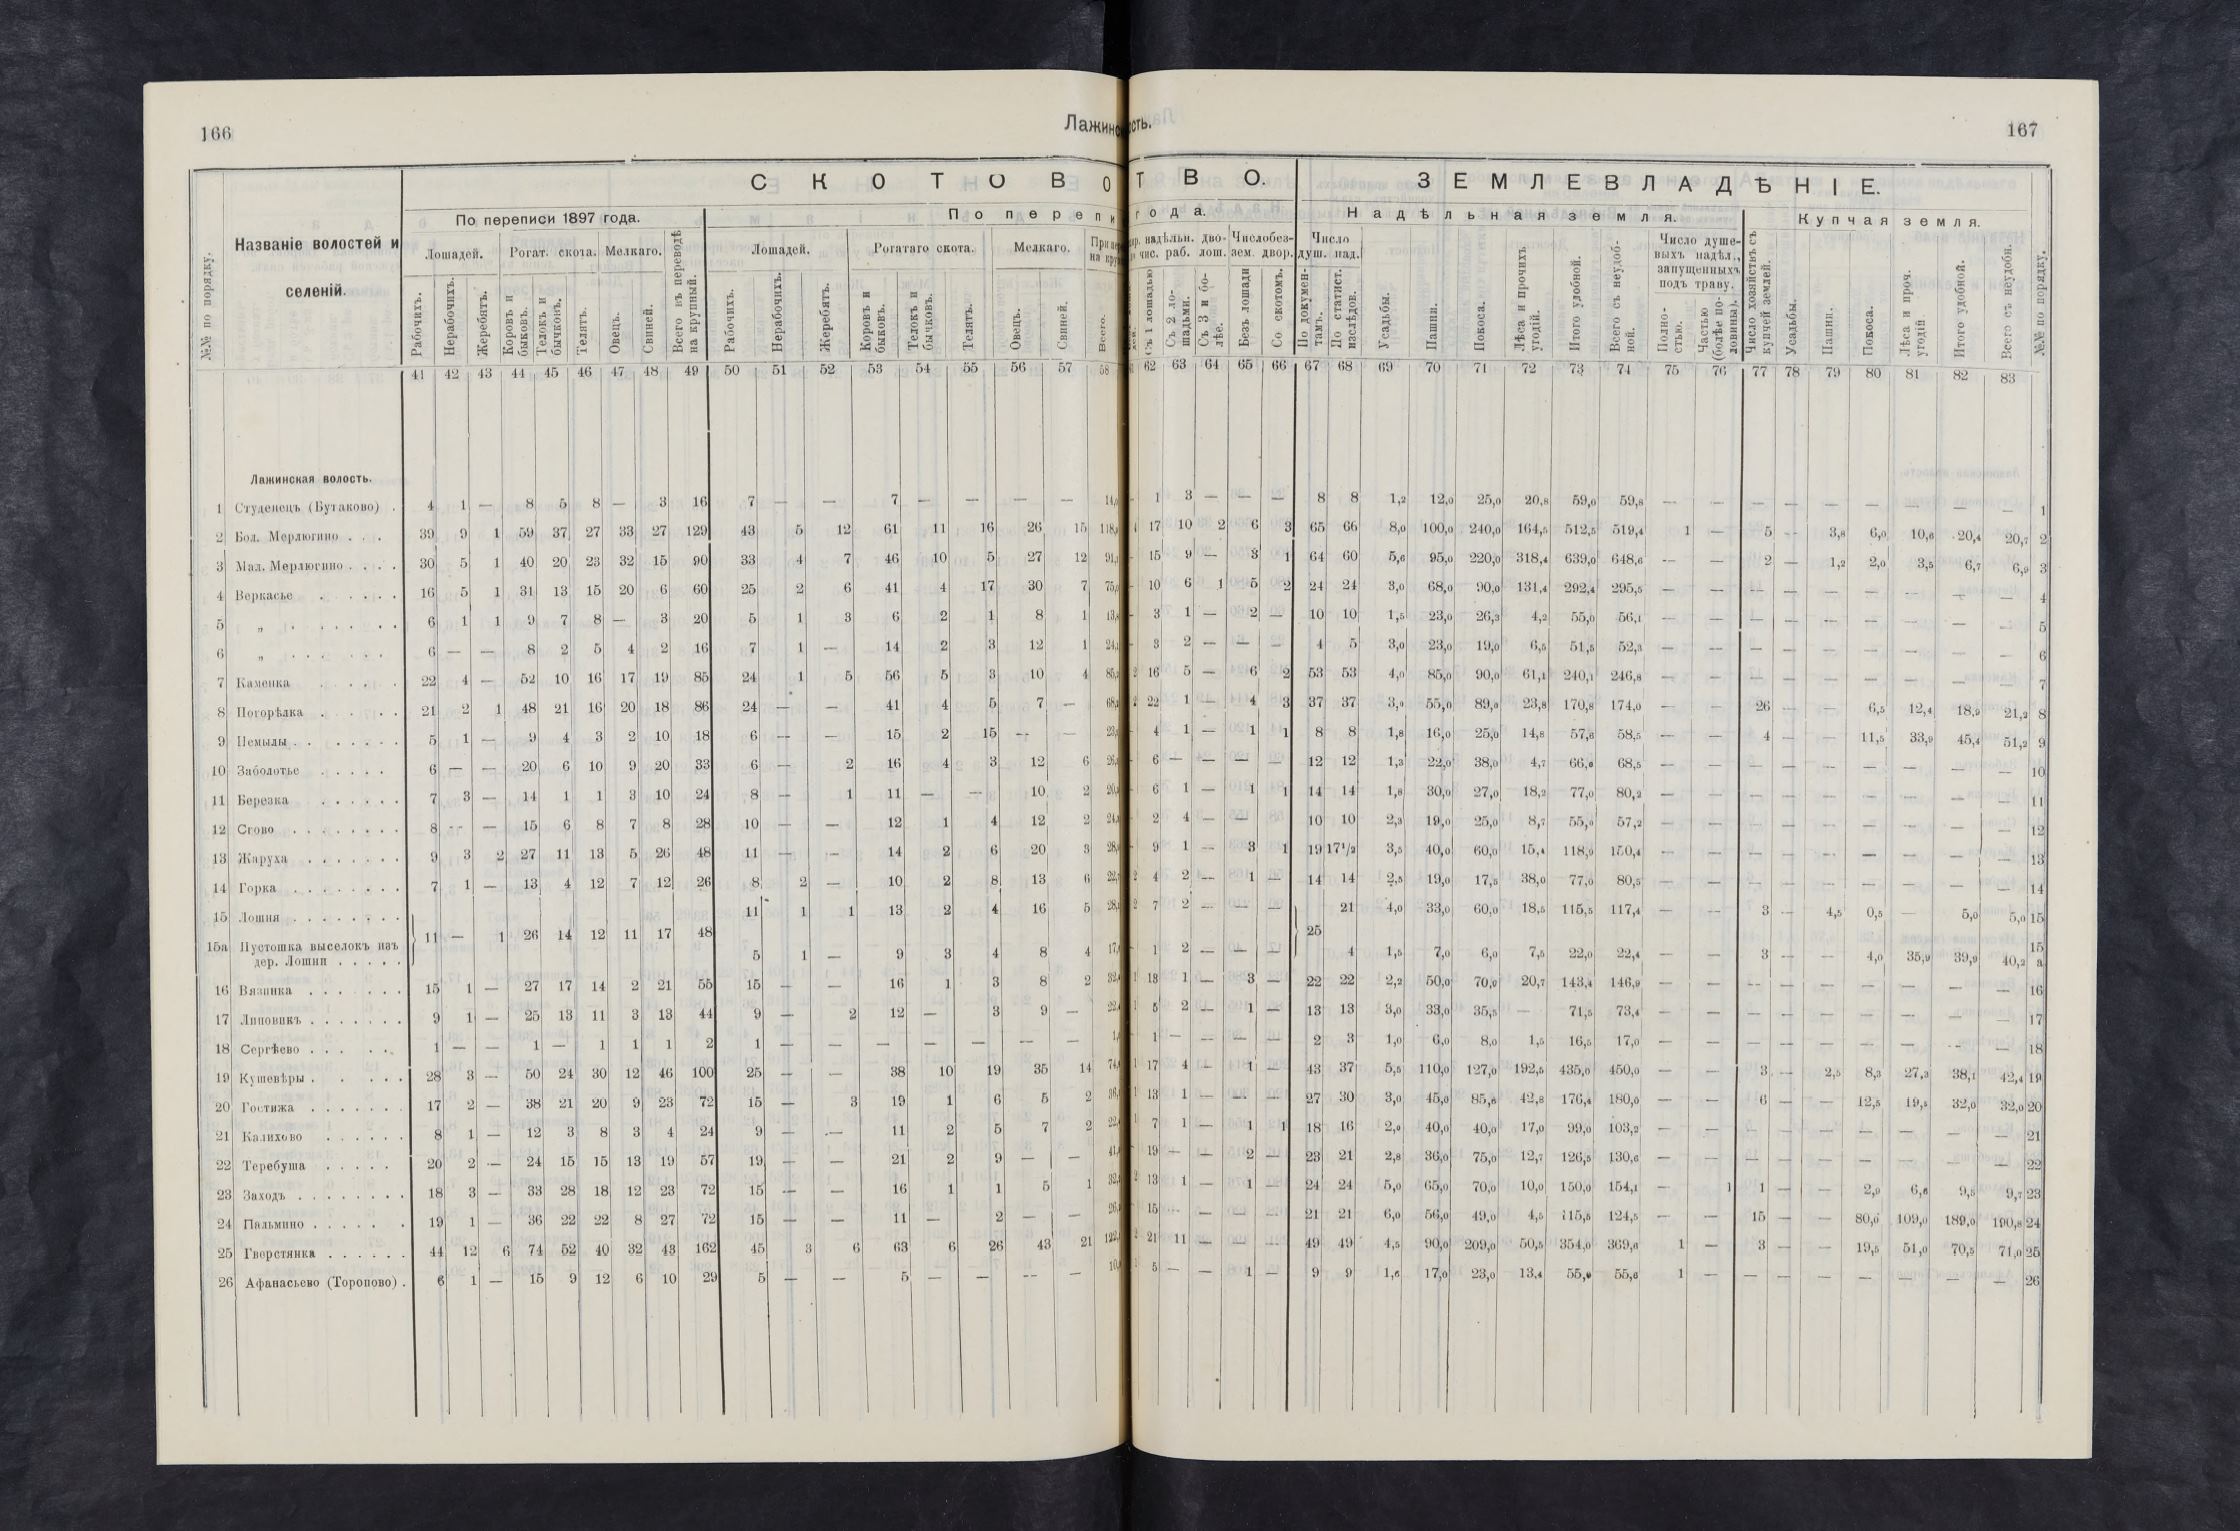 166
Лажинс
СКОТОВО
По переписи 1897 года.
По перепи
№№ по порядку.
Названіе волостей и селеній.
Лошадей.
Рогат. скота.
Мелкаго.
Всего въ переводѣ на крупный.
Лошадей.
Рогатаго скота.
Мелкаго.
Рабочихъ.
Нерабочихъ.
Жеребятъ.
Коровъ и быковъ.
Телокъ и бычковъ.
Телятъ.
Овецъ.
Свиней.
Рабочихъ.
Нерабочихъ.
Жеребятъ.
Коровъ и быковъ.
Телокъ и бычковъ.
Телятъ.
Овецъ.
Свиней.
Всего.
41 42 43 44 45 46 47 48 49 50 51 52 53 54 55 56 57 58
Лажинская волость.
1 Студенецъ (Бутаково) . 4 1 — 8 5 8 — 3 16 7 — — 7 — — — —
2 Бол. Мерлюгино . . . 39 9 1 59 37 27 33 27 129 43 5 12 61 11 16 26 15
3 Мал. Мерлюгино . . . . 30 5 1 40 20 23 32 15 90 33 4 7 46 10 5 27 12
4 Веркасье . . . . . 16 5 1 31 13 15 20 6 60 25 2 6 41 4 17 30 7
5 „ . . . . . . 6 1 1 9 7 8 — 3 20 5 1 3 6 2 1 8 1
6 „ . . . . . . 6 — — 8 2 5 4 2 16 7 1 — 14 2 3 12 1
7 Каменка . . . . . 22 4 — 52 10 16 17 19 85 24 1 5 56 5 3 10 4
8 Погорѣлка . . . . . 21 2 1 48 21 16 20 18 86 24 — — 41 4 5 7 —
9 Немылы . . . . . . . 5 1 — 9 4 3 2 10 18 6 — — 15 2 15 — —
10 Заболотье . . . . . 6 — — 20 6 10 9 20 33 6 — 2 16 4 3 12 6
11 Березка . . . . . . 7 3 — 14 1 1 3 10 24 8 — 1 11 — — 10 2
12 Сгово . . . . . . . . 8 — — 15 6 8 7 8 28 10 — — 12 1 4 12 2
13 Жаруха . . . . . . . 9 3 2 27 11 13 5 26 48 11 — — 14 2 6 20 3
14 Горка . . . . . . . . 7 1 — 13 4 12 7 12 26 8 2 — 10 2 8 13 6
15 Лошня . . . . . . . . 11 1 1 13 2 4 16 5
11 — 1 26 14 12 11 17 48
15а Пустошка выселокъ изъ
дер. Лошни . . . . . 5 1 — 9 3 4 8 4
16 Вязинка . . . . . . . 15 1 — 27 17 14 2 21 55 15 — — 16 1 3 8 2
17 Липовикъ . . . . . . . 9 1 — 25 13 11 3 13 44 9 — 2 12 — 3 9 —
18 Сергѣево . . . . . 1 — — 1 — 1 1 1 2 1 — — — — — — —
19 Кушевѣры . . . . . 28 3 — 50 24 30 12 46 100 25 — — 38 10 19 35 14
20 Гостижа . . . . . . . 17 2 — 38 21 20 9 23 72 15 — 3 19 1 6 5 2
21 Калихово . . . . . . 8 1 — 12 3 8 3 4 24 9 — — 11 2 5 7 2
22 Теребуша . . . . . 20 2 — 24 15 15 13 19 57 19 — — 21 2 9 — —
23 Заходъ . . . . . . . . 18 3 — 33 28 18 12 23 72 15 — — 16 1 1 5 1
24 Пальмино . . . . . . 19 1 — 36 22 22 8 27 72 15 — — 11 — 2 — —
25 Гверстянка . . . . . . 44 12 6 74 52 40 32 43 162 45 3 6 63 6 26 43 21
26 Афанасьево (Торопово) . 6 1 — 15 9 12 6 10 29 5 — — 5 — — — —
ость.
167
ТВО.
ЗЕМЛЕВЛАДѢНІЕ.
года.
Надѣльная земля.
Купчая земля.
надѣльн. дво-
чис. раб. лош.
Число без-
зем. двор.
Число
душ. над.
Число душе-
выхъ надѣл.,
запущенныхъ
подъ траву.
Съ 1 лошадью
Съ 2 ло-
шадьми.
Съ 3 и бо-
лѣе.
Безъ лошади
Со скотомъ.
По докумен-
тамъ.
По статист.
изслѣдов.
Усадьбы.
Пашни.
Покоса.
Лѣса и прочихъ
угодій.
Итого удобной.
Всего съ неудоб-
ной.
Полно-
стью.
Частью
(болѣе по-
ловины).
Число хозяйствъ съ
купчей землей.
Усадьбы.
Пашни.
Покоса.
Лѣса и проч.
угодій
Итого удобной.
Всего съ неудобн.
№№ по порядку.
62 63 64 65 66 67 68 69 70 71 72 73 74 75 76 77 78 79 80 81 82 83
1 3 — — — 8 8 1,2 12,0 25,0 20,8 59,0 59,8 — — — — — — — — — 1
17 10 2 6 3 65 66 8,0 100,0 240,0 164,5 512,5 519,4 1 — 5 — 3,8 6,0 10,6 20,4 20,7 2
15 9 — 3 1 64 60 5,6 95,0 220,0 318,4 639,0 648,6 — — 2 — 1,2 2,0 3,5 6,7 6,9 3
10 6 1 5 2 24 24 3,0 68,0 90,0 131,4 292,4 295,5 — — — — — — — — — 4
3 1 — 2 — 10 10 1,5 23,0 26,3 4,2 55,0 56,1 — — — — — — — — — 5
3 2 — — — 4 5 3,0 23,0 19,0 6,5 51,5 52,3 — — — — — — — — — 6
2 16 5 — 6 2 53 53 4,0 85,0 90,0 61,1 240,1 246,8 — — — — — — — — — 7
2 22 1 — 4 3 37 37 3,0 55,0 89,0 23,8 170,8 174,0 — — 26 — — 6,5 12,4 18,9 21,2 8
4 1 — 1 1 8 8 1,8 16,0 25,0 14,8 57,6 58,5 — — 4 — — 11,5 33,9 45,4 51,2 9
6 — — — — 12 12 1,3 22,0 38,0 4,7 66,0 68,5 — — — — — — — — — 10
6 1 — 1 1 14 14 1,8 30,0 27,0 18,2 77,0 80,2 — — — — — — — — — 11
2 4 — — — 10 10 2,3 19,0 25,0 8,7 55,0 57,2 — — — — — — — — — 12
9 1 — 3 1 19 17½ 3,5 40,0 60,0 15,4 118,9 150,4 — — — — — — — — — 13
2 4 2 — 1 — 14 14 2,5 19,0 17,5 38,0 77,0 80,5 — — — — — — — — — 14
2 7 2 — — — 21 4,0 33,0 60,0 18,5 115,5 117,4 — — 3 — 4,5 0,5 — 5,0 5,0 15
25
1 2 — — — 4 1,5 7,0 6,0 7,5 22,0 22,4 — — 3 — — 4,0 35,9 39,9 40,2 15 а
1 13 1 — 3 — 22 22 2,2 50,0 70,0 20,7 143,4 146,9 — — — — — — — — — 16
1 5 2 — 1 — 13 13 3,0 33,0 35,5 — 71,5 73,4 — — — — — — — — — 17
1 — — — — 2 3 1,0 6,0 8,0 1,5 16,5 17,0 — — — — — — — — — 18
1 17 4 — 1 — 43 37 5,5 110,0 127,0 192,5 435,0 450,0 — — 3 — 2,5 8,3 27,3 38,1 42,4 19
1 13 1 — — — 27 30 3,0 45,0 85,6 42,8 176,4 180,0 — — 6 — — 12,5 19,5 32,0 32,0 20
1 7 1 — 1 1 18 16 2,0 40,0 40,0 17,0 99,0 103,2 — — — — — — — — — 21
19 — — 2 — 23 21 2,8 36,0 75,0 12,7 126,5 130,6 — — — — — — — — — 22
2 13 1 — 1 — 24 24 5,0 65,0 70,0 10,0 150,0 154,1 — 1 1 — — 2,9 6,6 9,5 9,7 23
15 — — — — 21 21 6,0 56,0 49,0 4,5 115,5 124,5 — — 15 — — 80,0 109,0 189,0 190,8 24
2 21 11 — — — 49 49 4,5 90,0 209,0 50,5 354,0 369,6 1 — 3 — — 19,5 51,0 70,5 71,0 25
1 5 — — 1 — 9 9 1,6 17,0 23,0 13,4 55,0 55,6 1 — — — — — — — — 26